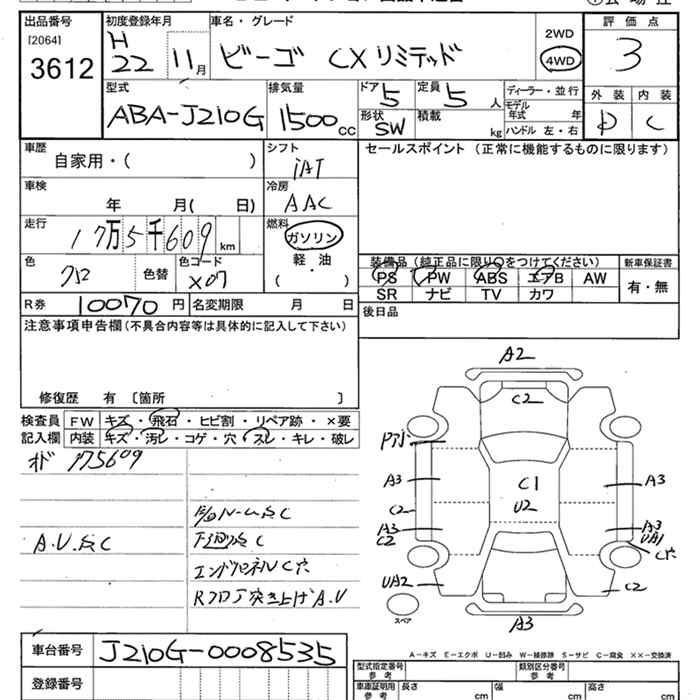 出品番号 初度登録年月 車名・グレード 2WD 評価点
[2064] 3612 H22 11月 ビーゴ CXリミテッド 4WD 3
型式 排気量 ドア 定員 ディーラー・並行 外装 内装
ABA-J210G 1500CC 5 5人 モデル年式 年 D C
形状 SW 積載 kg ハンドル 左・右
車歴 自家用・( ) シフト iAT セールスポイント (正常に機能するものに限ります)
車検 年 月( 日) 冷房 AAC
走行 17万5千609km 燃料 ガソリン
軽油
・
( )
色 色替 色コード X07
装備品 (純正品に限り○をつけてください) 新車保証書
PS PW ABS エアB AW 有・無
SR ナビ TV カワ
R券 10070円 名変期限 月 日 後日品
注意事項申告欄(不具合内容等は具体的に記入して下さい)
修復歴 有 〔箇所 〕
検査員 FW キズ・飛石・ヒビ割・リペア跡・×要
記入欄 内装 キズ・汚レ・コゲ・穴・スレ・キレ・破レ
175609
A.U.&C
下回&C
エンドパネルC穴
Rフロア突き上げA.U
A2
C2
A3
C2
A3
C2
UA2
C1
U2
A3
A3
UA1
C穴
C2
A3
スペア
A-キズ E-エクボ U-凹み W-補修跡 S-サビ C-腐食 ××-交換済
車台番号 J210G-0008535
登録番号
型式指定番号 参考 類別区分番号 参考
車庫証明用 参考 長さ cm 幅 cm 高さ cm